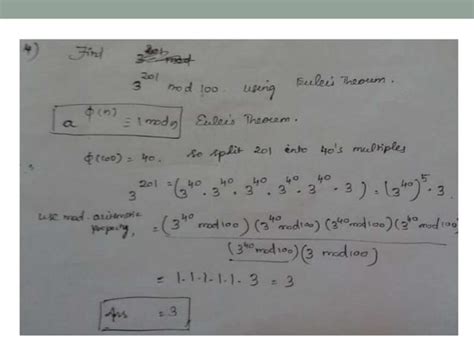 4) Find 3^201 mod
3^201 mod 100. using Euler's Theorem.
a^φ(n) ≡ 1 mod n Euler's Theorem.
φ(100) = 40. so split 201 into 40's multiples
3^201 = (3^40 . 3^40 . 3^40 . 3^40 . 3^40 . 3) = (3^40)^5 . 3
use mod. property, = (3^40 mod 100) (3^40 mod 100) (3^40 mod 100) (3^40 mod 100)
(3^40 mod 100) (3 mod 100)
= 1.1.1.1.1. 3 = 3
Ans = 3